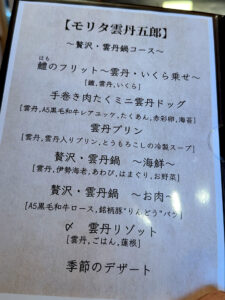 【モリタ雲丹五郎】
〜贅沢・雲丹鍋コース〜
はも
鱧のフリット〜雲丹・いくら乗せ〜
[鱧,雲丹,いくら]
手巻き肉たくミニ雲丹ドッグ
[雲丹,A5黒毛和牛レアユッケ,たくあん,赤彩卵,海苔]
雲丹プリン
[雲丹,雲丹入りプリン,とうもろこしの冷製スープ]
贅沢・雲丹鍋 〜海鮮〜
[雲丹,伊勢海老,あわび,はまぐり,お野菜]
贅沢・雲丹鍋 〜お肉〜
[A5黒毛和牛ロース,銘柄豚"りんどう"バラ]
〆 雲丹リゾット
[雲丹,ごはん,蓮根]
季節のデザート